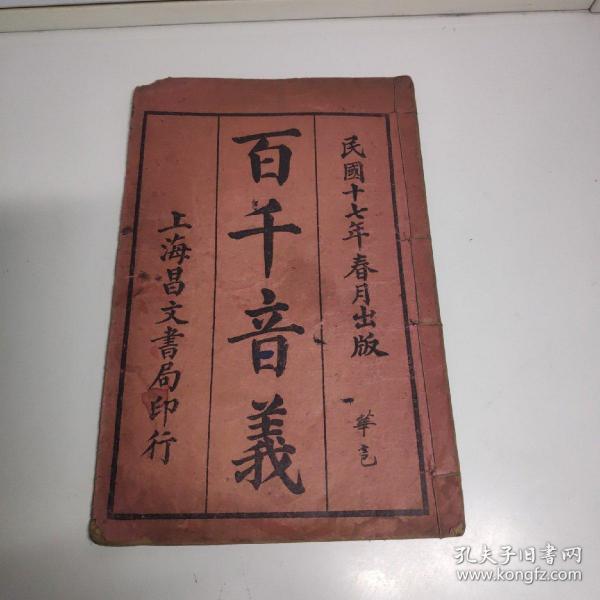 民國十七年春月出版
百千音義
上海昌文書局印行
孔夫子旧书网
www.kongfz.com